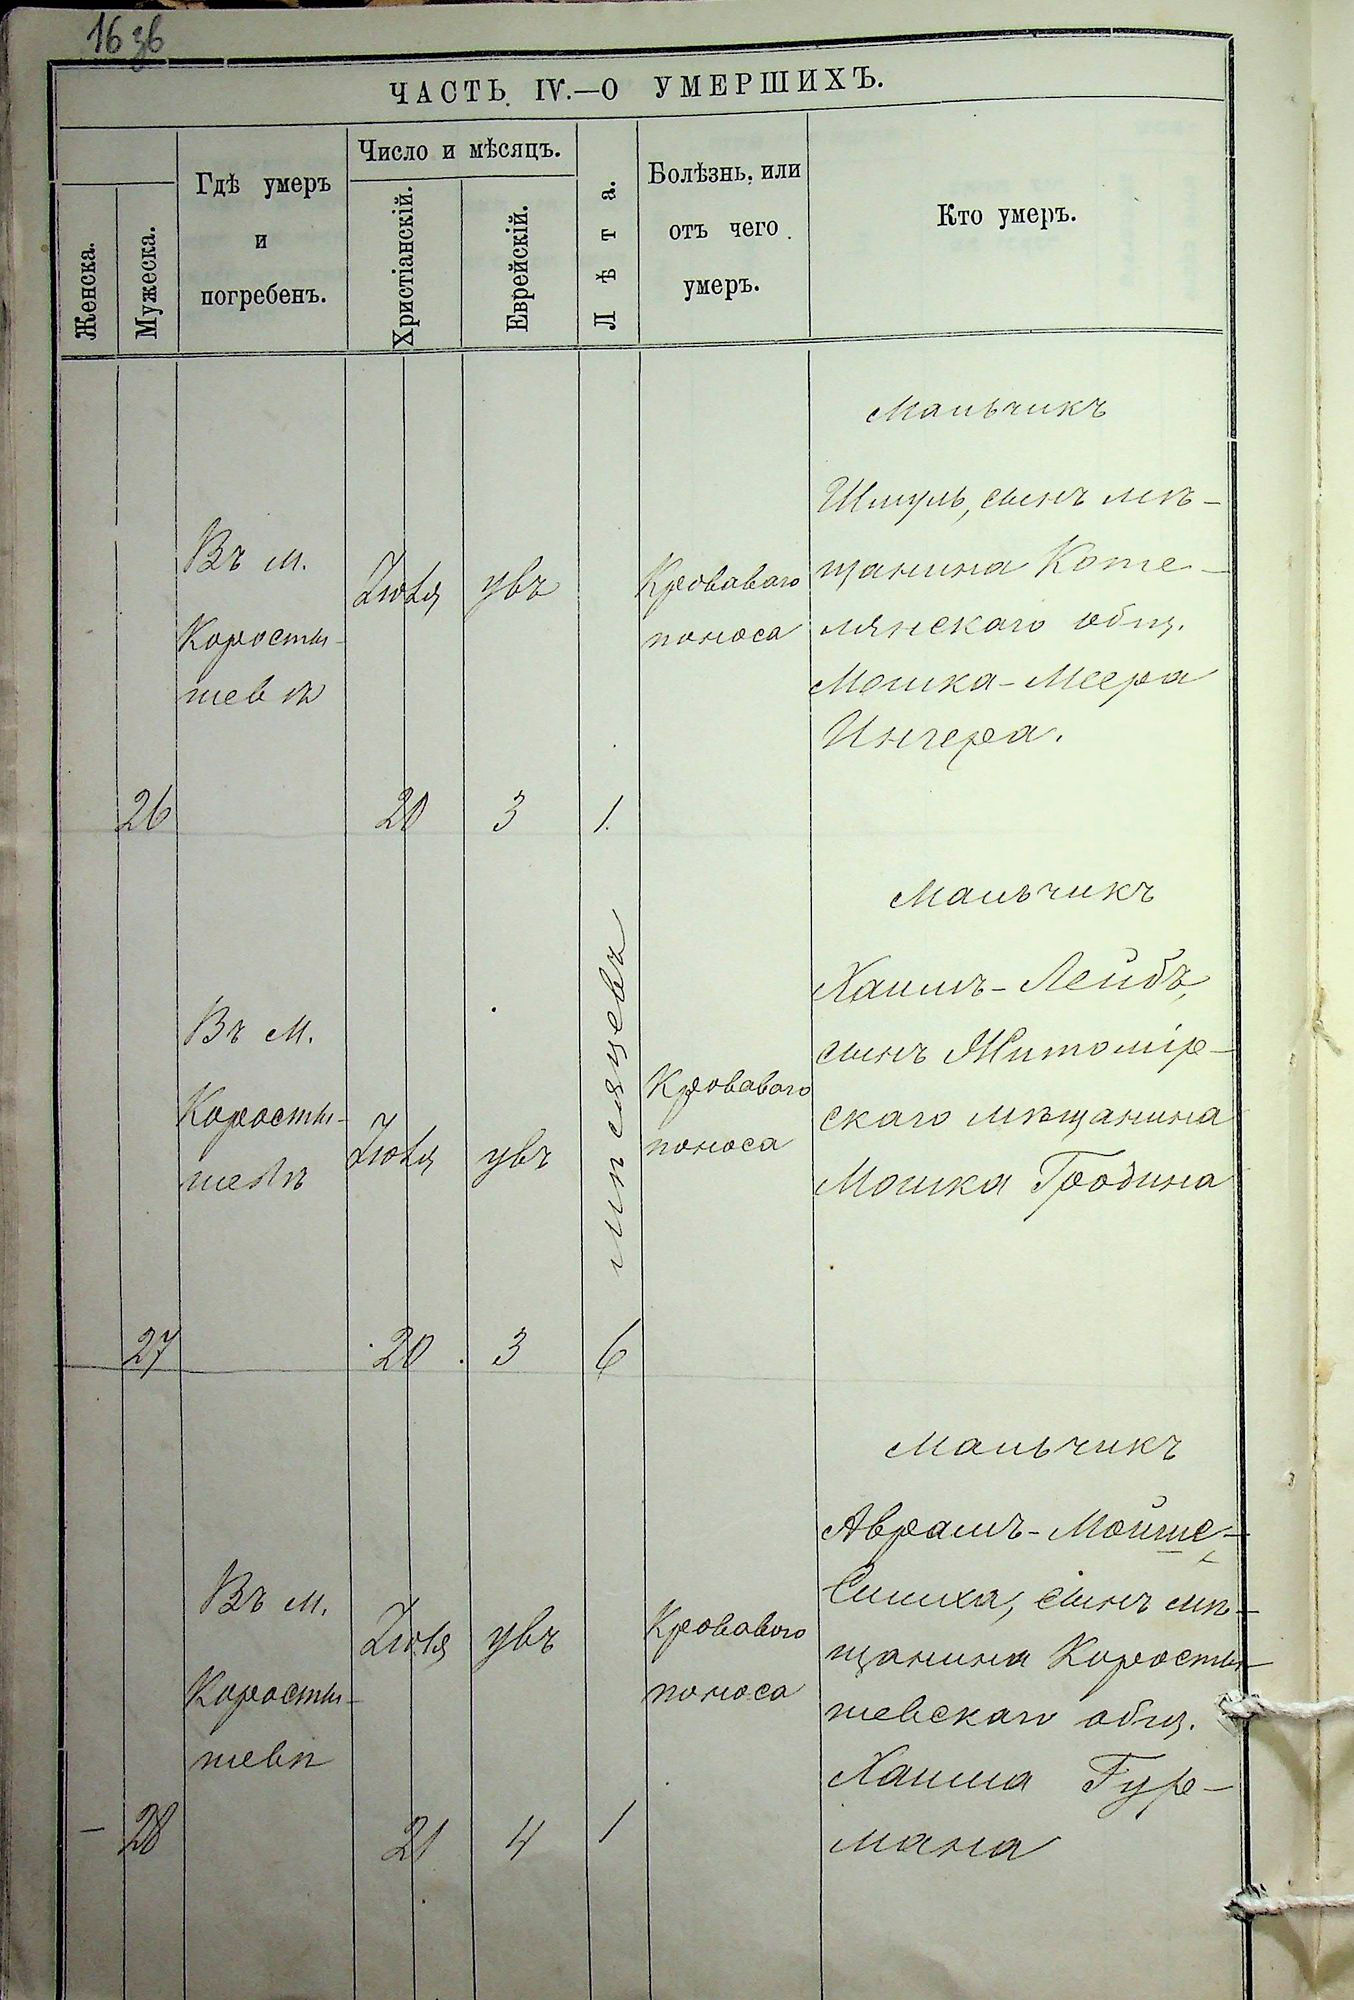 16 зв
ЧАСТЬ IV.—О УМЕРШИХЪ.
Женска.
Мужеска.
Гдѣ умеръ
и
погребенъ.
Число и мѣсяцъ.
Христіанскій.
Еврейскій.
Лѣта.
Болѣзнь, или
отъ чего
умеръ.
Кто умеръ.
26
Въ м.
Коросты-
шевѣ
Іюля
20
увъ
3
1.
Кроваваго
поноса
Мальчикъ
Шмуль, сынъ мѣ-
щанина Коте-
лянскаго общ.
Мошка-Меера
Ингера.
27
Въ м.
Коросты-
шевѣ
Іюля
20
увъ
3
6
мѣсяцевъ
Кроваваго
поноса
Мальчикъ
Хаимъ-Лейбъ,
сынъ Житомір-
скаго мѣщанина
Мошка Гродина
- 28
Въ м.
Коросты-
шевѣ
Іюля
21
увъ
4
1
Кроваваго
поноса
Мальчикъ
Аврамъ-Мойше-
Симха, сынъ мѣ-
щанина Коросты-
шевскаго общ.
Хаима Гур-
мана